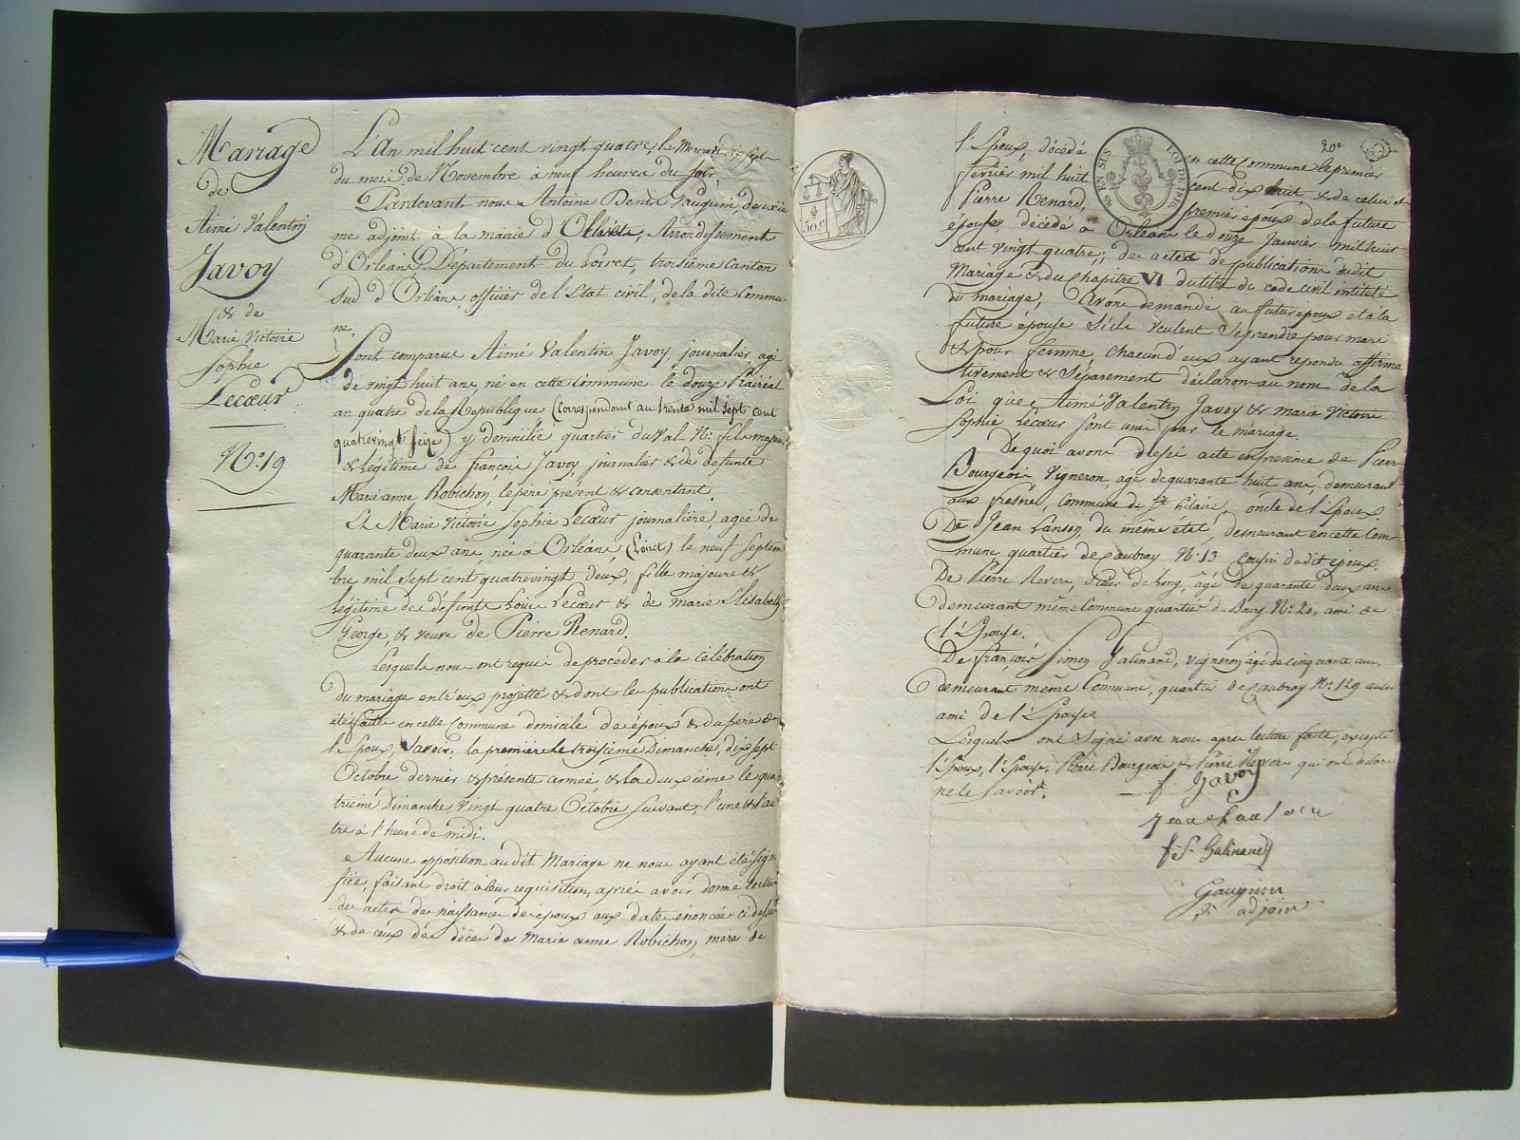 Mariage
de
Aimé Valentin
Javoy
& de
Marie Victoire
Sophie
Lecœur
N.º 19
L'An mil huit cent vingt quatre, le Mercredi dix sept
du mois de Novembre à neuf heures du soir
Pardevant nous Antoine Benoit Gauguin, deuxiè
me adjoint à la mairie d'Olivet, Arrondissement
d'Orléans, Département du Loiret, troisième Canton
Sud d'Orléans, officier de l'Etat civil, de la dite Commu
ne,
Sont comparus Aimé Valentin Javoy, journalier, agé
de vingt huit ans, né en cette Commune le douze Prairéal
an quatre de la République (correspondant au trente mil sept cent
quatrevingt seize) y domicilié quartier du Val N.º fils majeur
& légitime de françois Javoy, journalier & de défunte
Marie anne Robichon, le père présent & consentant.
Et Marie Victoire Sophie Lecœur journalière, agée de
quarante deux ans, née à Orléans, (Loiret) le neuf Septem
bre mil sept cent quatrevingt deux, fille majeure &
légitime de défunt Louis Lecœur & de Marie Elisabeth
George, & veuve de Pierre Renard.
Lesquels nous ont requis de procéder à la célébration
du mariage entr'eux projetté & dont les publications ont
été faites en cette Commune domicile des époux & du père de
l'Epoux, Savoir: la première le troisième Dimanche, dix sept
Octobre dernier & présente année, & la deuxième le qua
trième Dimanche vingt quatre Octobre suivant, l'une & l'au
tre à l'heure de midi.
Aucune opposition au dit Mariage ne nous ayant été signi
fiée, faisant droit à leur requisition, après avoir donné lecture
des actes de naissance des époux aux dates énoncées ci dessus
& de ceux des décès de Marie anne Robichon, mère de
20e
l'Epoux, décédé en cette Commune le premier
février mil huit cent dix huit, & de celui de
Pierre Renard, premier époux de la future
épouse, décédé à Orléans le douze Janvier mil huit
cent vingt quatre; des actes de publications dudit
Mariage & du Chapitre VI du titre du code civil intitulé
du mariage, Avons demandé au futur époux et à la
future épouse s'ils veulent se prendre pour mari
& pour femme, chacun d'eux ayant répondu affirma
tivement & séparement déclarons au nom de la
Loi que Aimé Valentin Javoy & Marie Victoire
Sophie Lecœur sont unis par le mariage.
De quoi avons dressé acte en présence de Pierre
Bourgeois Vigneron, agé de quarante huit ans, demeurant
aux fresnes, Commune de St. hilaire, oncle de l'Epoux.
De Jean Lanson du même état, demeurant en cette Com
mune, quartier de Caubray N.º 13 cousin dudit époux.
De Pierre Revere, Scieur de long, âgé de quarante deux ans
demeurant même Commune quartier du Bourg N.º 20, ami de
l'Epouse.
De françois Simon Galinand, vigneron agé de cinquante ans
demeurant même Commune, quartier de Caubray N.º 129 aussi
ami de l'Epouse
Lesquels ont signé avec nous après lecture faite, excepté
l'Epoux, l'Epouse, Pierre Bourgeois & Pierre Revere qui ont déclaré
ne le savoir.
f Javoy
f S Galinand
Gauguin
adjoint